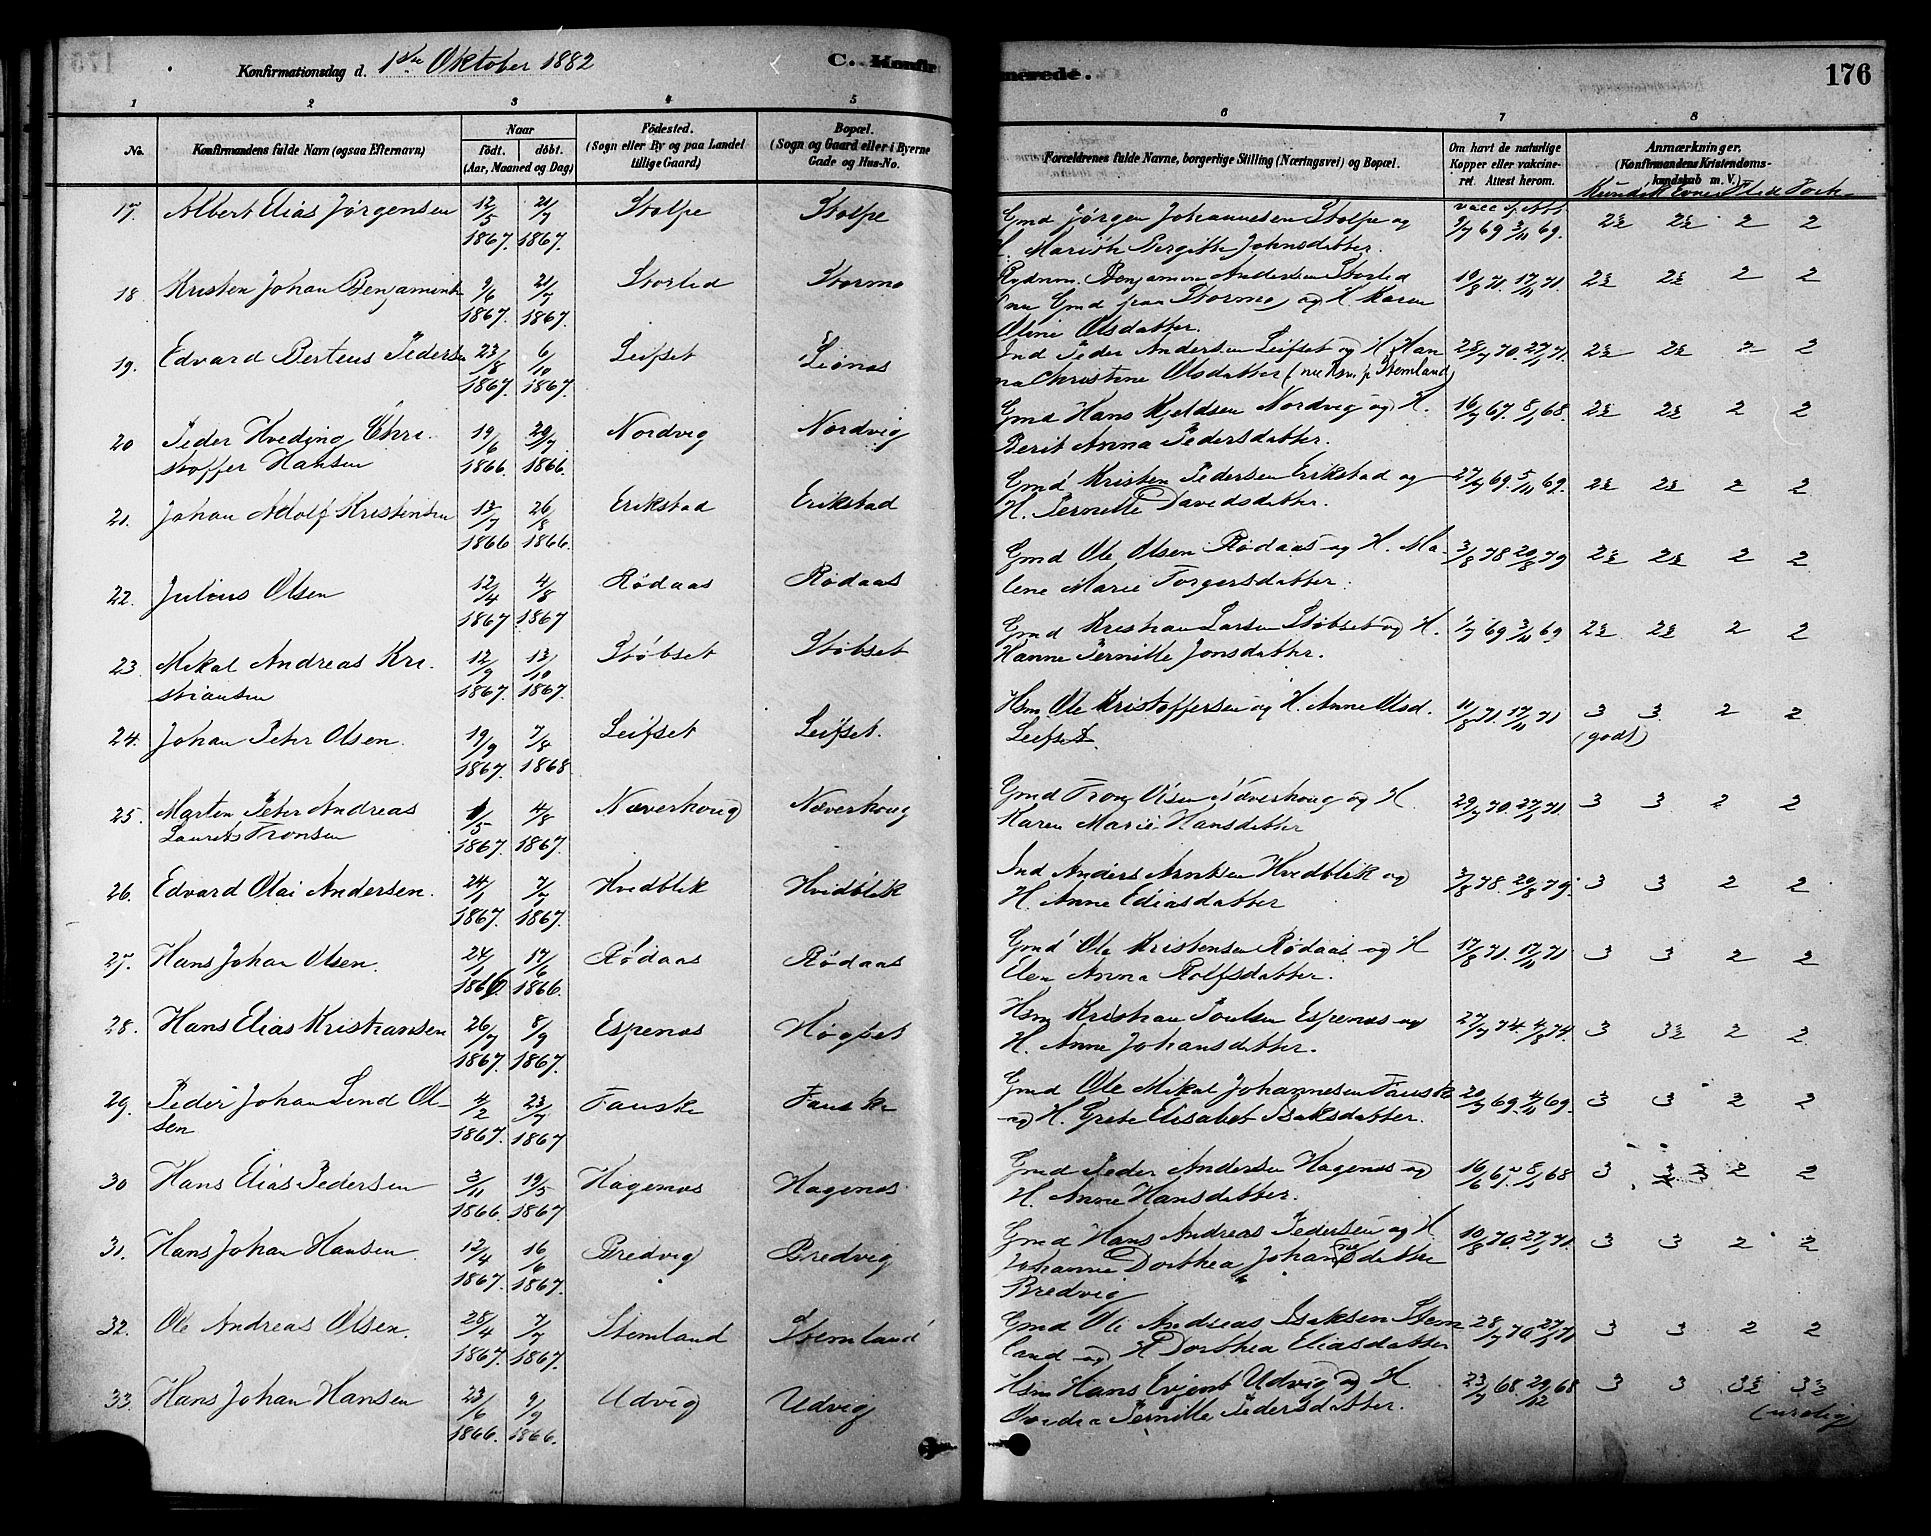 Konfirmationsdag d. 1ste Oktober 1882
C. Konfirmerede.
176
1 2 3 4 5 6 7 8
No.
Konfirmandens fulde Navn (ogsaa Efternavn)
Naar
födt. döbt.
(Aar, Maaned og Dag)
Födested.
(Sogn eller By og paa Landet
tillige Gaard)
Bopæl.
(Sogn og Gaard eller i Byerne
Gade og Hus-No.
Forældrenes fulde Navne, borgerlige Stilling (Næringsvei) og Bopæl.
Om havt de naturlige
Kopper eller vakcine-
ret. Attest herom.
Anmærkninger,
(Konfirmandens Kristendoms-
kundskab m. V.)
Kundsk Evner Flid
17. Albert Elias Jørgensen 12/5 1867. 21/7 1867. Stolpe Stolpe Gmd Jørgen Johannesen Stolpe og
H. Birgitte Johnsdatter. 69 3/11 69. 2½ 2½ 2 2
18 Kristen Johan Benjamins 9/6 1867. 21/7 1867. Storlid Stormo Benjamin Andersen Storlid
(nu Gmd paa Stormo) og H. Karen
Oline Olsdatter. 19/8 71. 17/11 71. 2½ 2½ 2 2
19. Edvard Berteus Pedersen 23/8 1867. 6/10 1867. Leifset Lienes Ind Peder Andersen Leifset og H. Han
na Christine Olsdatter (nu Hsm. p Stemland) 28/7 70. 27/1 71. 2½ 2½ 2 2
20 Peder Hveding Chri-
stoffer Hansen 19/6 1866. 29/7 1866. Nordvig Nordvig Gmd Hans Kjeldsen Nordvig og H.
Berit Anna Pedersdatter. 16/7 67. 8/1 68. 2½ 2½ 2 2
21. Johan Adolf Kristensen 13/7 1866 26/8 1866. Erikstad Erikstad Gmd Kristen Pedersen Erikstad og
H. Pernille Davidsdatter. 27/7 69. 5/11 69. 2½ 2½ 2 2
22. Julius Olsen 12/4 1867. 4/8 1867 Rödaas Rödaas Gmd Ole Olsen Rödaas og H. Ma-
lene Marie Torgersdatter. 3/8 78 20/8 79 2½ 2½ 2 2
23. Mikal Andreas Kri-
stiansen 12/9 1867. 13/10 1867. Stöbset Stöbset Gmd Kristian Larsen Stöbset og H.
Hanne Pernille Jonsdatter. 69 3/11 69 2½ 2½ 2 2
24. Johan Peter Olsen. 19/9 1867. 7/8 1868 Leifset Leifset. Hsm. Ole Kristoffersen og H. Anne Olsd.
Leifset. 11/8 71 17/11 71 3 3 2 2
(godt)
25. Morten Peter Andreas
Laurits Tronsen 1/5 1867. 4/8 1867. Næverhoug Næverhoug Gmd Tron Olsen Næverhoug og H.
Karen Marie Hansdatter 29/7 70. 27/1 71. 3 3 2 2
26. Edvard Olai Andersen. 24/1 1867. 7/7 1867. Hvidblik Hvidblik Ind Anders Arntsen Hvidblik og
H. Anne Ediasdatter 3/8 78. 20/8 79. 3 3 2 2
27. Hans Johan Olsen. 24/1 1866. 17/6 1866. Rödaas Rödaas Gmd Ole Kristensen Rödaas og H
Elen Anna Rolfsdatter. 17/8 71. 17/11 71 3 3 2 2
28. Hans Elias Kristiansen 26/7 1867. 8/9 1867. Espenes Høgset Hsm Kristian Poulsen Espenes og
H. Anne Johansdatter. 27/7 74. 4/8 74. 3 3½ 2 2
29. Peder Johan Lund Ol-
sen 4/2 1867. 23/7 1867 Fauske Fauske Gmd Ole Mikal Johannesen Fauske
og H. Grete Elisabet Isaksdatter. 20/7 69. 4/11 69. 3 3 2 2
30 Hans Elias Pedersen 3/11 1866. 19/5 1867 Hagenes Hagenes Gmd Peder Andersen Hagenes og
H. Anne Hansdatter. 16/6 67. 8/1 68 3 3 2 2
31. Hans Johan Hansen. 12/4 1867. 16/6 1867. Bredvig Bredvig Gmd Hans Andreas Pedersen og H.
Johanne Dorthea Johannedatter
Bredvig 10/8 70. 27/1 71. 3 3 2 2
32. Ole Andreas Olsen. 28/4 1867. 7/7 1867. Stemland Stemland Gmd Ole Andreas Isaksen Stem
land og H Dorthea Eliasdatter 28/7 70 27/1 71 3 3 2 2
33. Hans Johan Hansen 23/6 1866. 9/9 1866. Udvig Udvig Hsm Hans Evjent Udvig og H.
Pernille Pedersdatter. 23/7 68. 29/12 68 3 3 3½ 3½
(urolig)